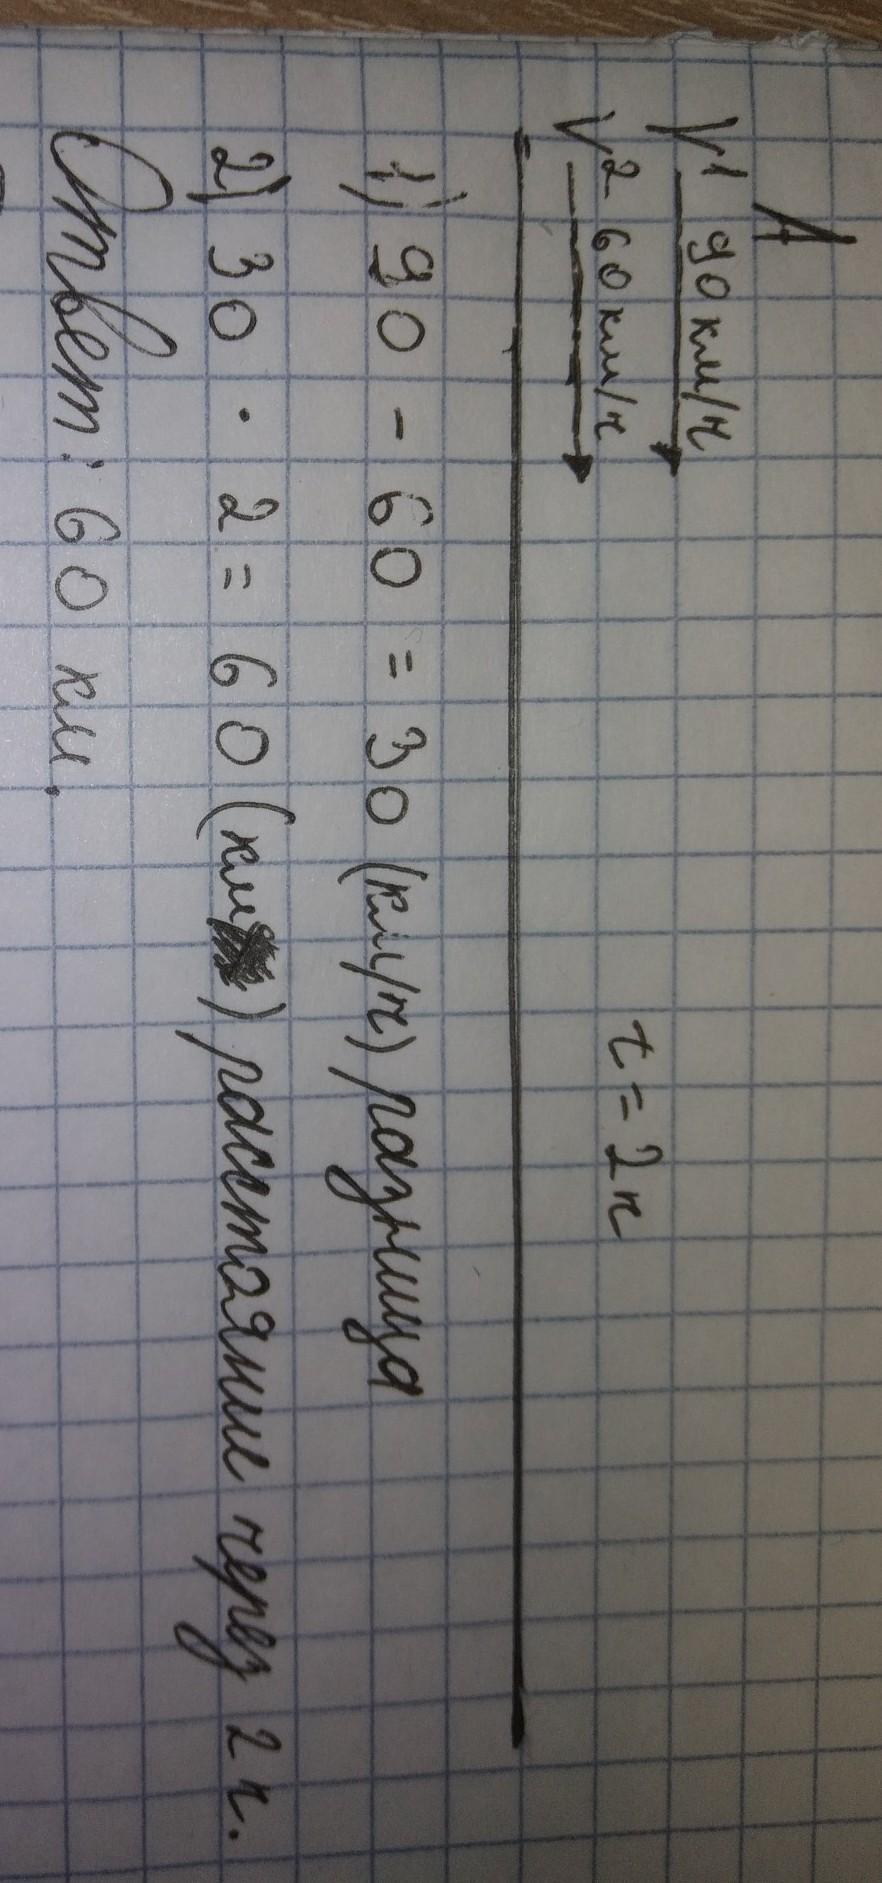 А
V1 90 км/ч
V2 60 км/ч
t = 2ч
1) 90 - 60 = 30 (км/ч) разница
2) 30 · 2 = 60 (км) расстаяние через 2 ч.
Ответ: 60 км.